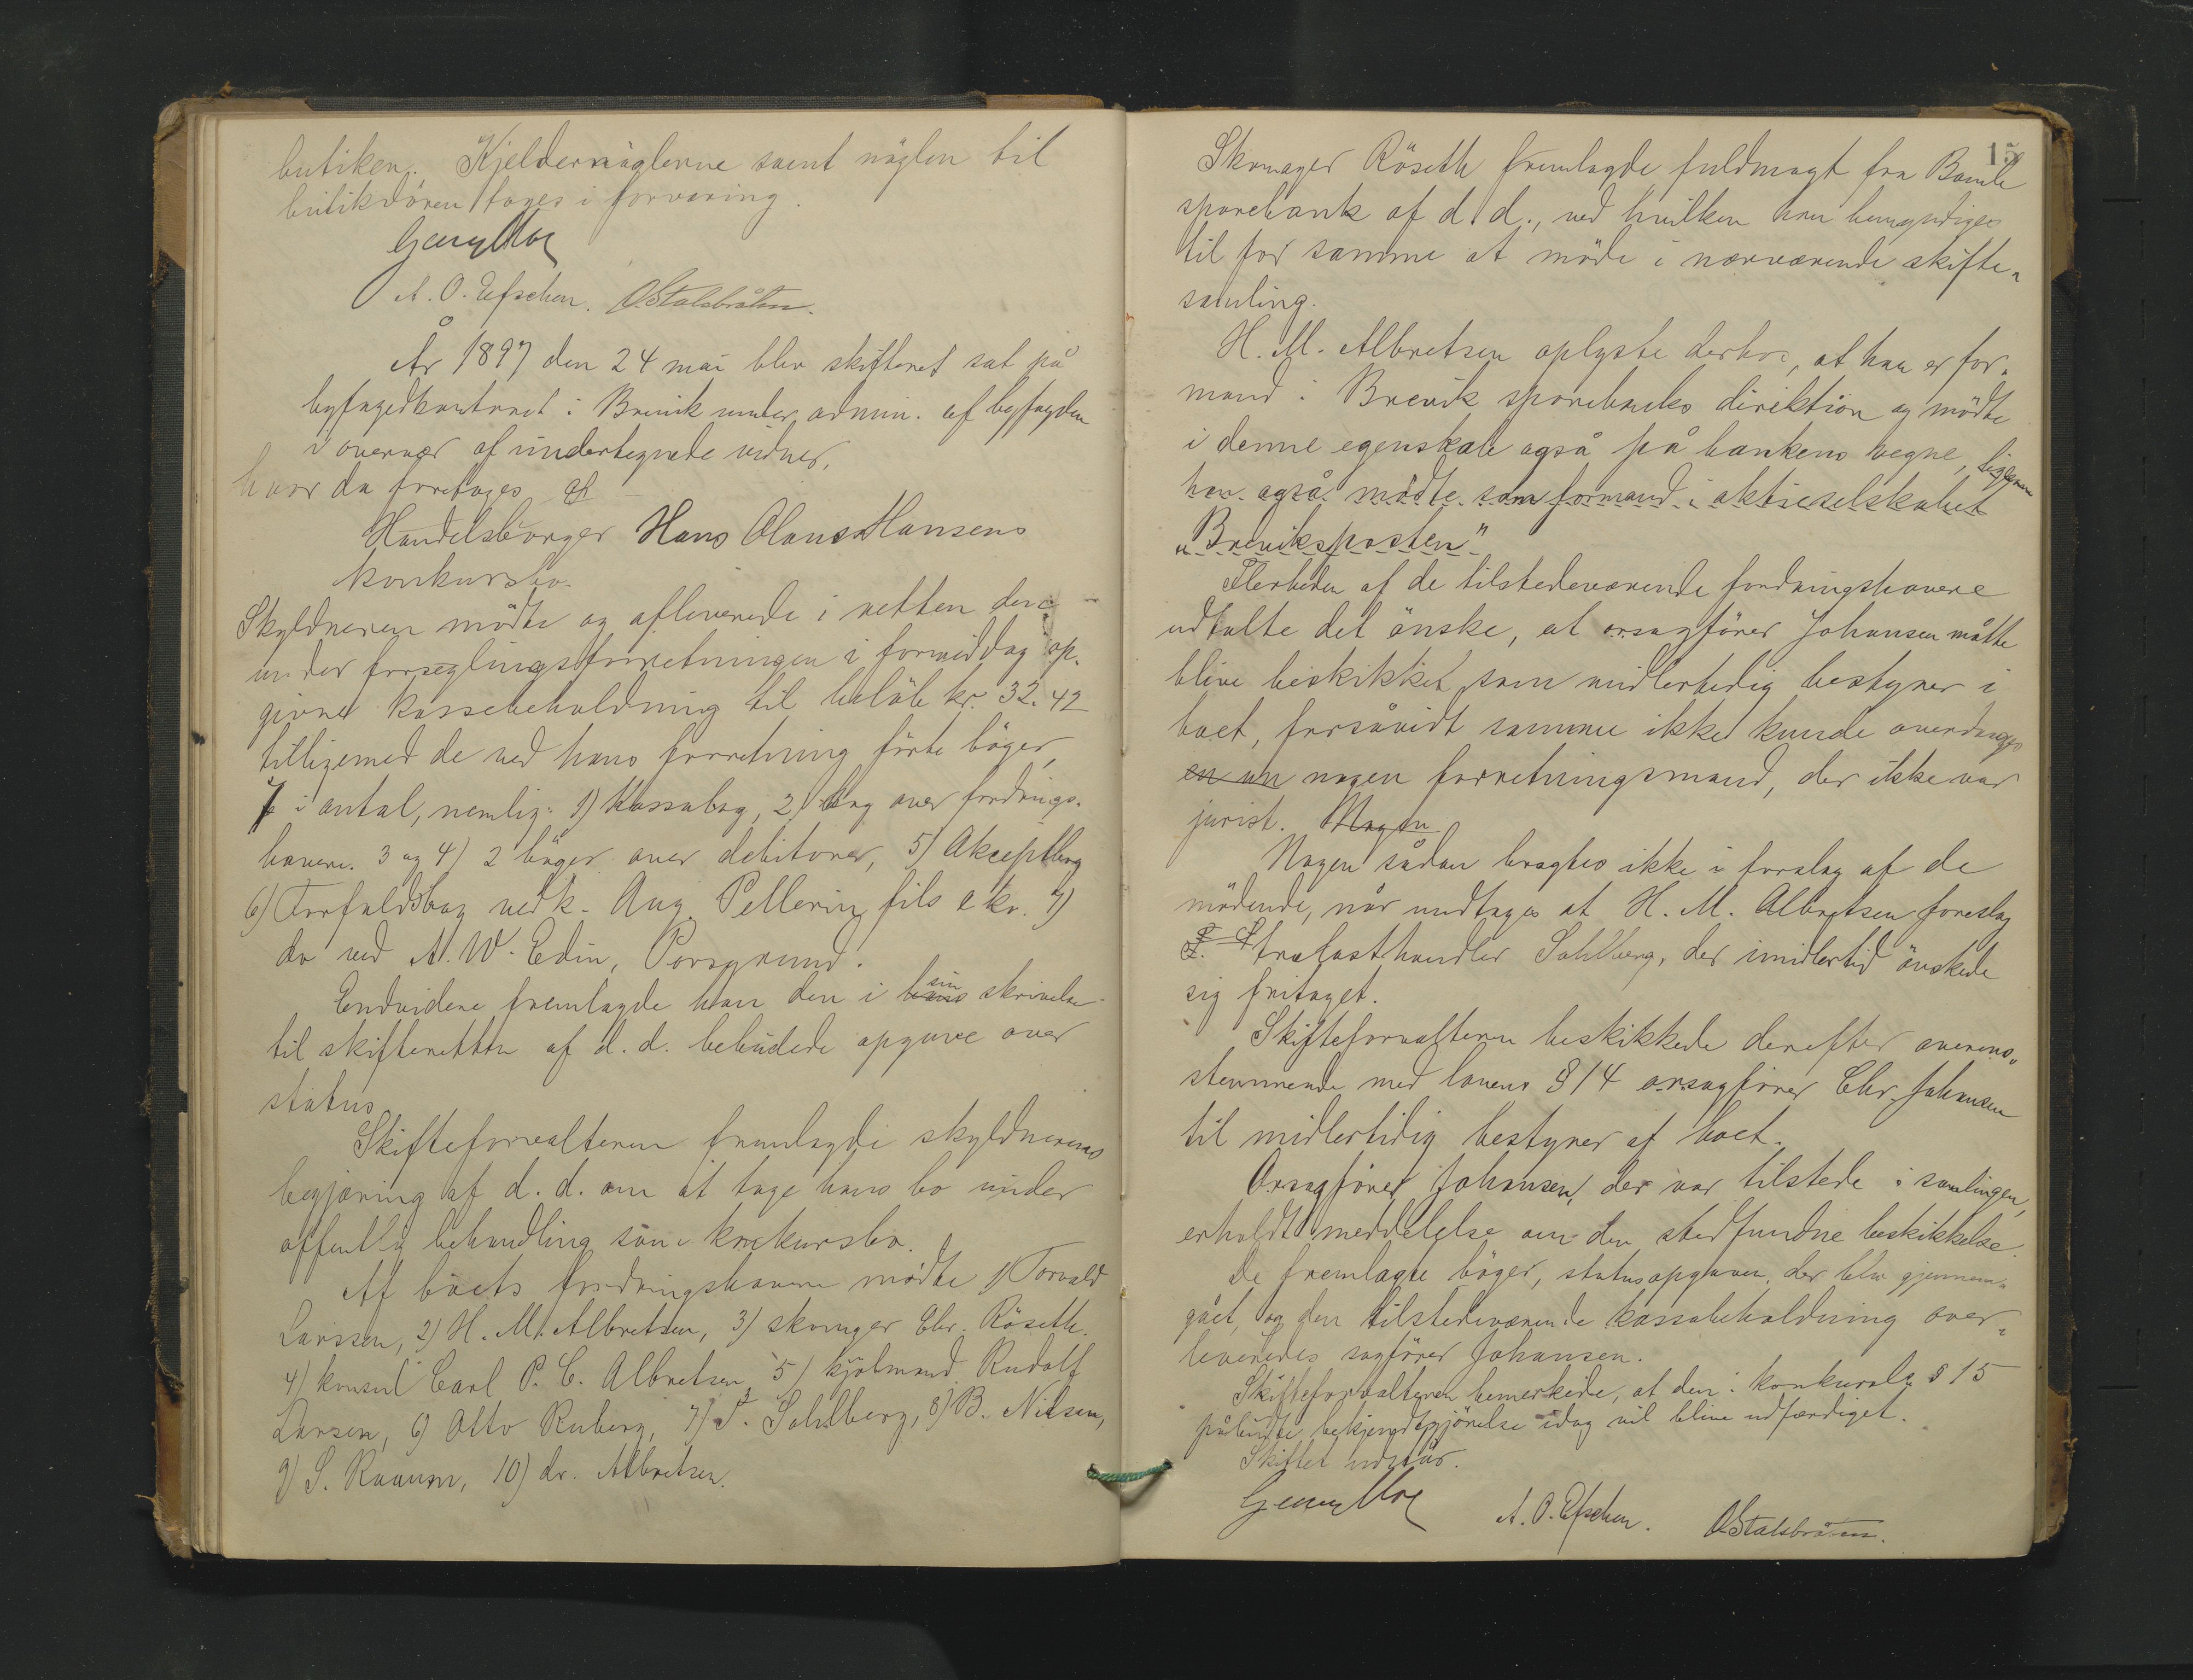 butiken. Kjeldernøglerne samt nøglen til
butikdören tages i forvaring.
A. O. Efschen. O. Stalsbråten.
År 1897 den 24 mai blev skifteret sat på
byfogedkontoret i Brevik under admin. af byfogden
i overvær af undertegnede vidner,
hvor da foretoges
Handelsborger Hans Olaus Hansens
konkursbo.
Skyldneren mödte og afleverede i retten den
under forseglingsforretningen i formiddag op-
givne kassebeholdning til belöb kr. 32.42
tilligemed de ved hans forretning förte böger,
7 i antal, nemlig: 1) Kassabog, 2) bog over fordrings-
havere. 3 og 4) 2 böger over debitorer, 5) Akceptbog
6) Forfaldsbog vedk. Aug. Pellerin fils & ko. 7)
do ved A. W. Edin, Porsgrund.
Endvidere fremlagde han den i hans sin skrivelse
til skifteretten af d. d. bebudede opgave over
status
Skifteforvalteren fremlagde skyldnerens
begjæring af d. d. om at tage hans bo under
offentlig behandling som konkursbo.
Af boets fordringshavere mödte 1) Torvald
Larssen, 2) H. M. Albretsen, 3) skomager Chr. Röseth.
4) konsul Carl P. C. Albretsen, 5) kjöbmand Rudolf
Larsen, 6) Otto Ruberg, 7) J. Sahlberg, 8) B. Nilsen,
9) S. Raaum, 10) dr. Albretsen.
15
Skomager Röseth fremlagde fuldmagt fra Bamble
sparebank af d. d., ved hvilken han bemyndiges
til for samme at möde i nærværende skifte-
samling.
H. M. Albretsen oplyste derhos, at han er for-
mand i Brevik sparebanks direktion og mödte
i denne egenskab også på bankens vegne, ligesom
han også mödte som formand i aktieselskabet
"Breviksposten"
Flerheden af de tilstedeværende fordringshavere
udtalte det önske, at orsagförer Johansen måtte
blive beskikket som midlertidig bestyrer i
boet, forsåvidt samme ikke kunde overdrages
en an nogen forretningsmand, der ikke var
jurist. Nogen
Nogen sådan bragtes ikke i forslag af de
mödende, når undtages at H. M. Albretsen foreslog
trælasthandler Sahlberg, der imidlertid önskede
sig fritaget.
Skifteforvalteren beskikkede derefter overens-
stemmende med lovens § 14 orsagförer Chr. Johansen
til midlertidig bestyrer af boet.
Orsagförer Johansen, der var tilstede i samlingen,
erholdt meddelelse om den stedfundne beskikkelse.
De fremlagte böger, statusopgaven, der blev gjennem-
gået, og den tilstedeværende kassabeholdning over-
leveredes sagförer Johansen.
Skifteforvalteren bemerkede, at den i konkursl. § 15
påbudte bekjendtgjörelse idag vil blive udfærdiget.
Skiftet udstår.
A. O. Efschen. O. Stalsbråten.